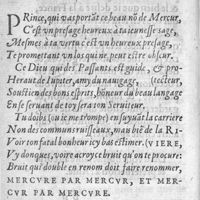 PRince, qui vas portāt ce beau nō de Mercur,
C'est vn presage heureux à ta ieunesse sage,
Mesmes à ta vertu c'est vn heureux presage,
Te promettant vn los qui ne peut estre obscur.
Ce Dieu qui des Passants est guide, & pro-
Heraut de Iupiter, amy du nauigage, (tecteur,
Soustien des bons esprits, honneur du beau langage
En se seruant de toy sera ton Seruiteur.
Tu doibs (ou ie me trompe) en suyuāt la carriere
Non des communs ruisseaux, mais biē de la RI-
Voir ton fatal bonheur icy bas estimer. (VIERE,
Vy donques, voire acroy ce bruit qu'on te procure:
Bruit qui double en renom doit faire renommer,
MERCVRE PAR MERCVR, ET MER-
CVR PAR MERCVRE.